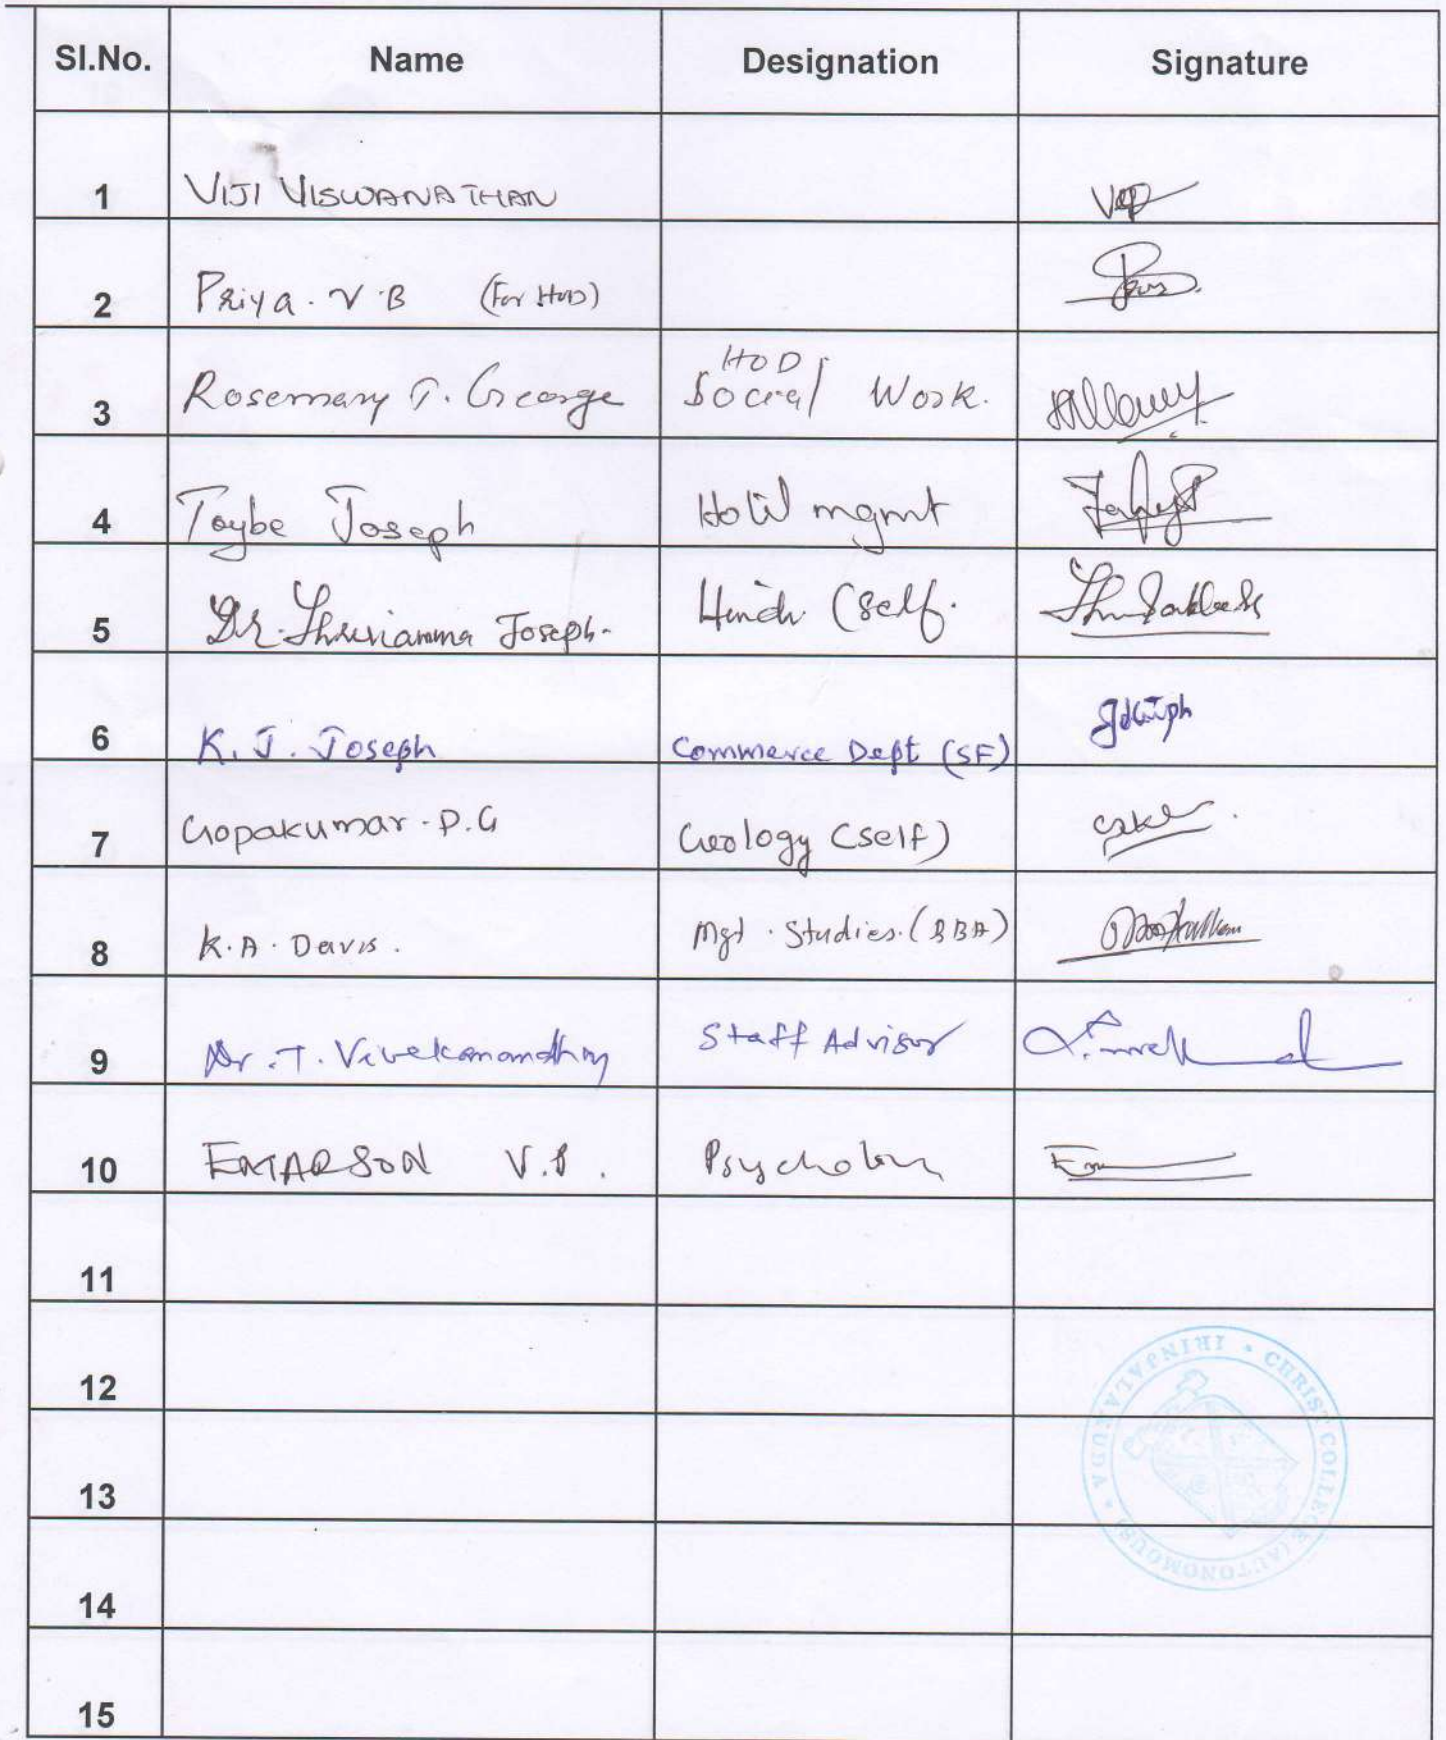 Sl.No. Name Designation Signature
1 VIJI VISWANATHAN
2 Priya. V.B (For HOD)
HOD
3 Rosemary T. George Social Work.
4 Toybe Joseph Hotel mgmt
5 Dr. Joseph. Hindi (Self.
6 K. J. Joseph Commerce Dept (SF)
7 Gopakumar. P.G Geology (self)
8 K.A. Davis. Mgt. Studies. (BBA)
9 Dr. T. Staff Advisor
10 EMARSON V.P. Psychology
11
12
13
14
15
CHRIST COLLEGE (AUTONOMOUS) • IRINJALAKUDA •